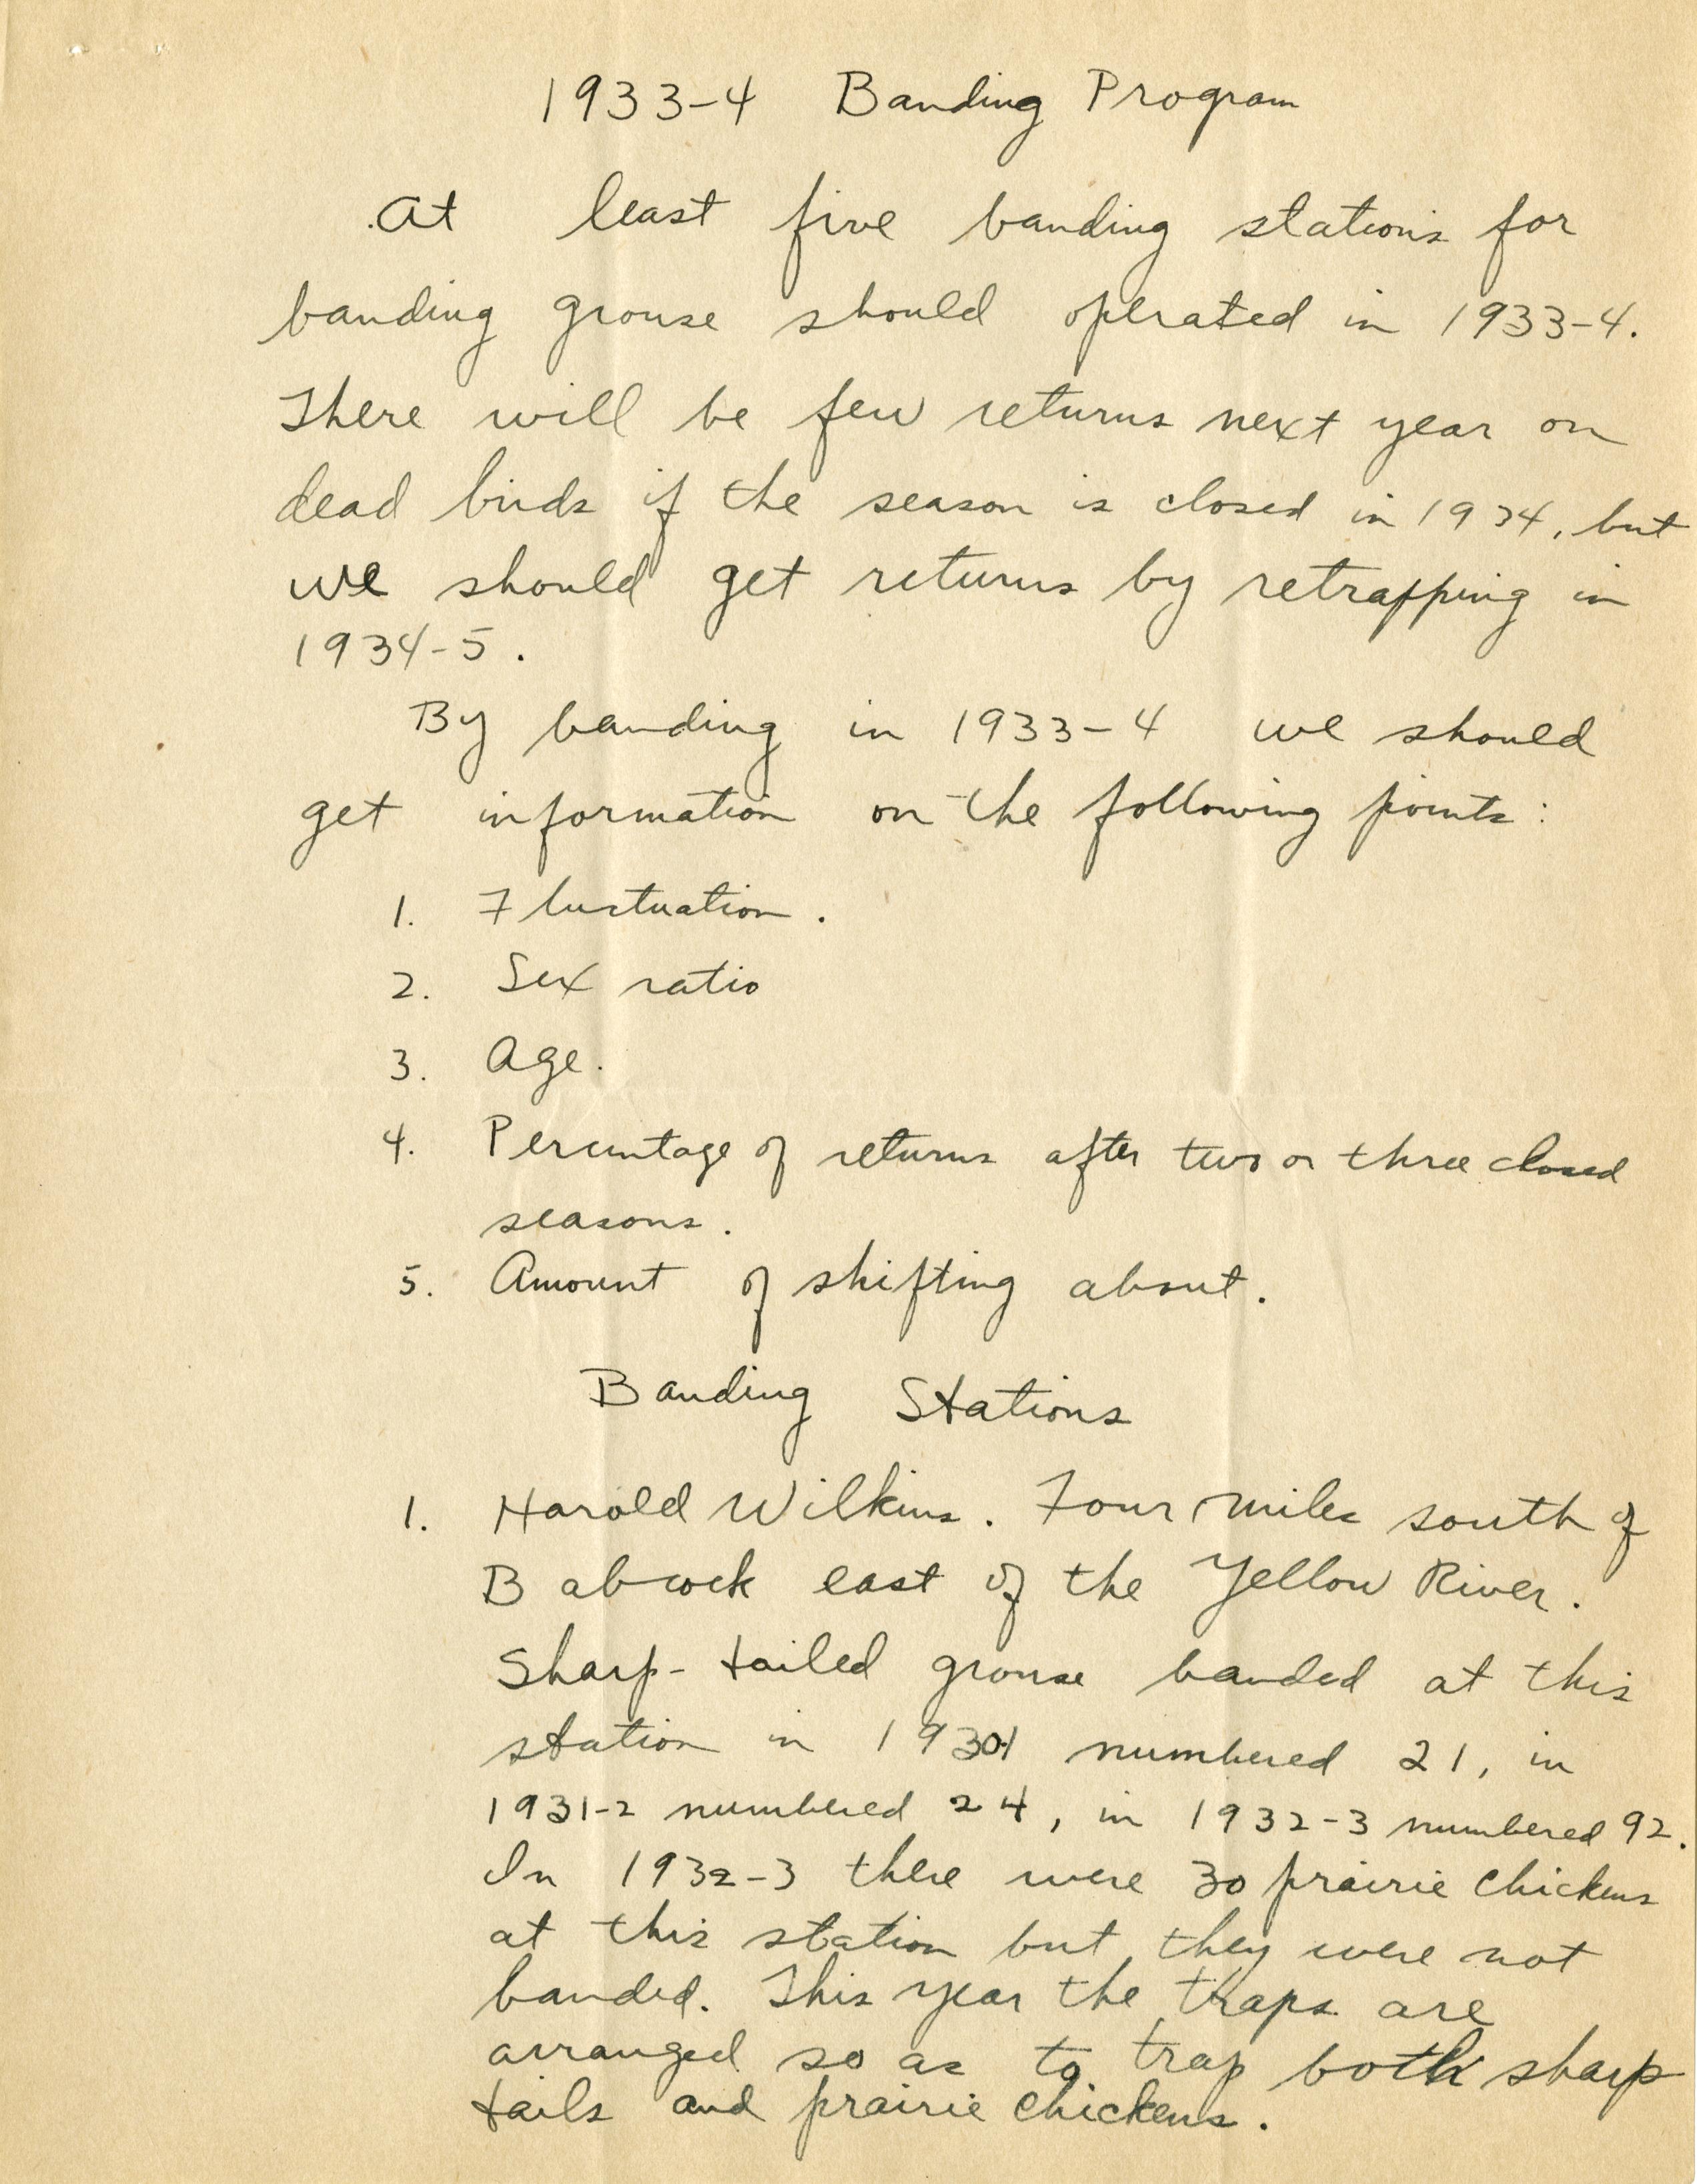 1933-4 Banding Program
At least five banding stations for
banding grouse should operated in 1933-4.
There will be few returns next year on
dead birds if the season is closed in 1934, but
we should get returns by retrapping in
1934-5.
By banding in 1933-4 we should
get information on the following points:
1. Fluctuation.
2. Sex ratio
3. Age.
4. Percentage of returns after two or three closed
seasons.
5. Amount of shifting about.
Banding Stations
1. Harold Wilkins. Four miles south of
Babcock east of the Yellow River.
Sharp-tailed grouse banded at this
station in numbered 21, in
1931-2 numbered 24, in 1932-3 numbered 92.
In 1932-3 there were 30 prairie chickens
at this station but they were not
banded. This year the traps are
arranged so as to trap both sharp
tails and prairie chickens.